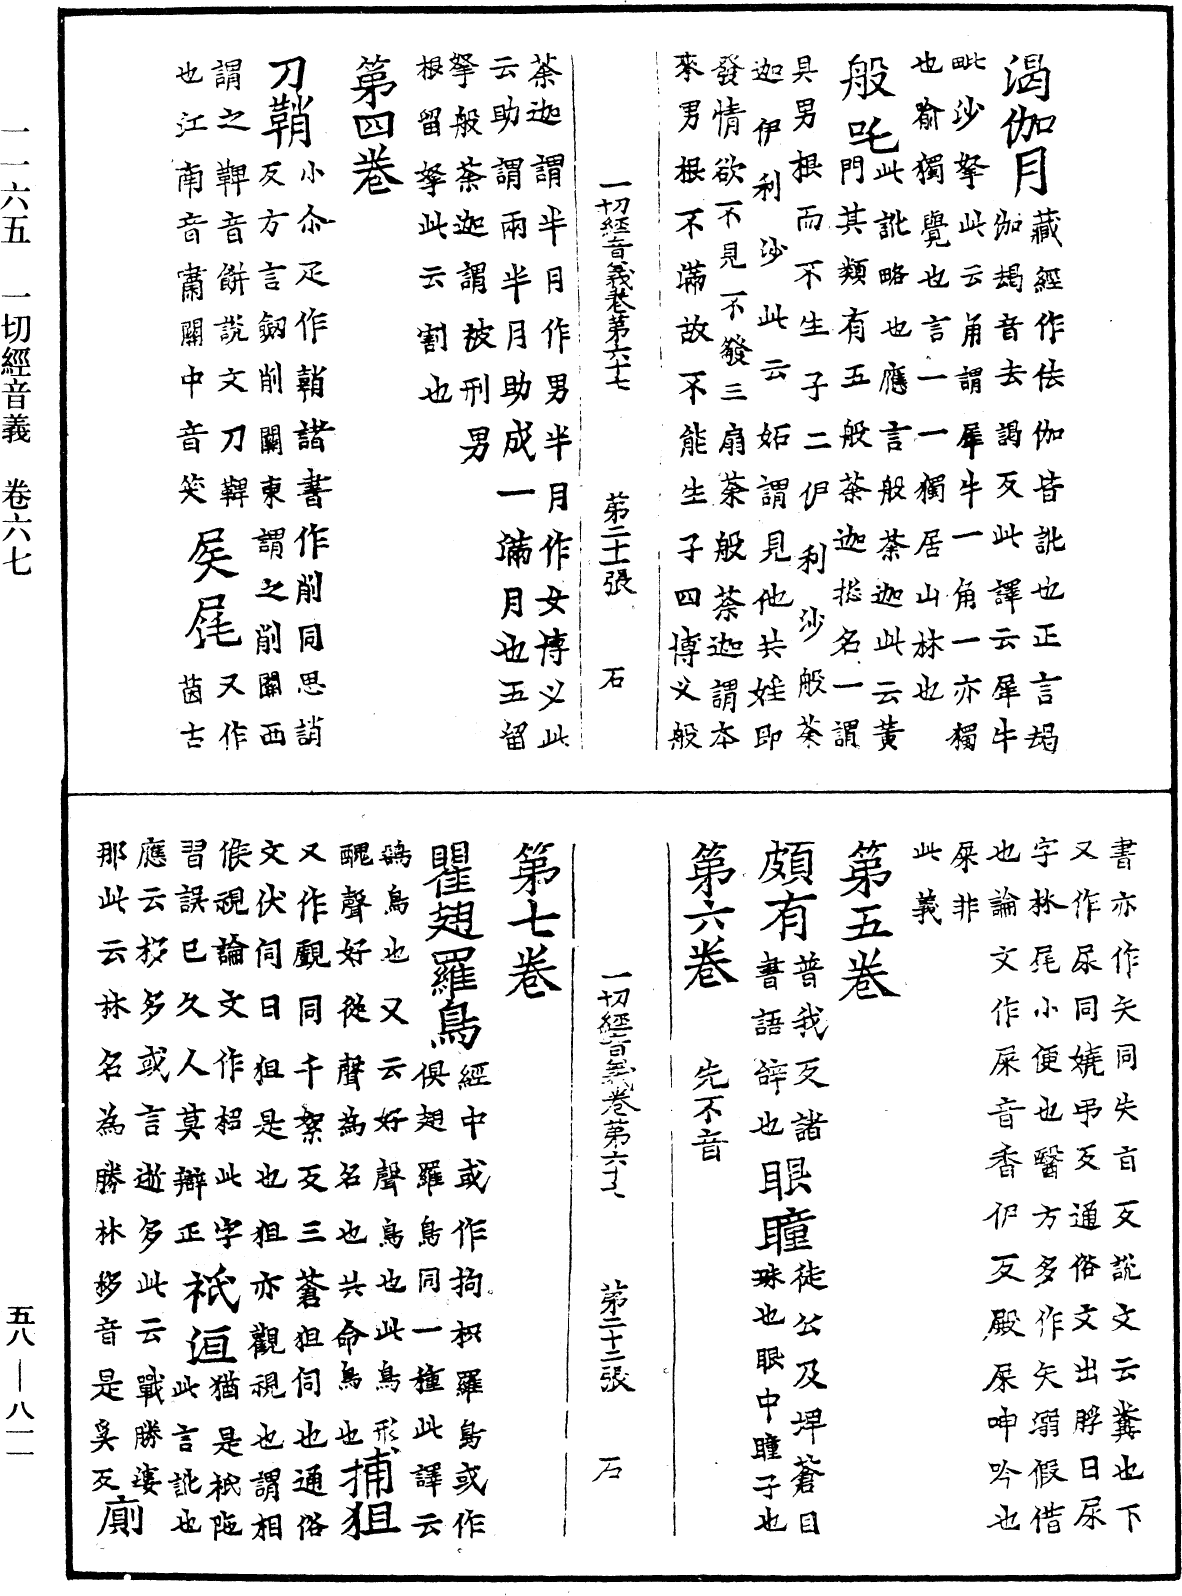 渴伽月藏經作佉伽皆訛也正言朅
伽朅音去謁反此譯云犀牛
毗沙拏此云角謂犀牛一角一亦獨
也喻獨覺也言一一獨居山林也
般吒此訛略也應言般荼迦此云黃
門其類有五般荼迦揔名一謂
具男根而不生子二伊利沙般荼
迦伊利沙此云妬謂見他共婬即
發情欲不見不發三扇荼般荼迦謂本
來男根不滿故不能生子四博义般
一切經音義卷第六十七 第二十一張 石
荼迦謂半月作男半月作女博义此
云助謂兩半月助成一滿月也五留
拏般荼迦謂被刑男
根留拏此云割也
第四卷
刀鞘小尒疋作鞘諸書作削同思誚
反方言劒削關東謂之削關西
謂之鞞音餅說文刀鞞也江南音肅關中音笑
㞍𡱁又作
茵古
書亦作矢同失旨反說文云糞也下
又作尿同嬈弔反通俗文出脬曰尿
字林尾小便也醫方多作矢溺假借
也論文作屎音香伊反殿屎呻吟也
屎非
此義
第五卷
頗有普我反諸
書語辝也
眼瞳徒公及埤蒼目
珠也眼中瞳子也
第六卷 先不音
一切經音義卷第六十七 第二十二張 石
第七卷
瞿翅羅鳥經中或作拘枳羅鳥或作
俱翅羅鳥同一種此譯云
鵒鳥也又云好聲鳥也此鳥形
醜聲好從聲為名也共命鳥也
捕狙
又作覰同千絮反三蒼狙伺也通俗
文伏伺曰狙是也狙亦觀視也謂相
候視論文作柖此字
習誤巳久人莫辯正
祇洹猶是祇陁
此言訛也
應云移多或言逝多此云戰勝婆
那此云林名為勝林移音是奚反
廁
一一六五 一切經音義 卷六七
五八—八一一